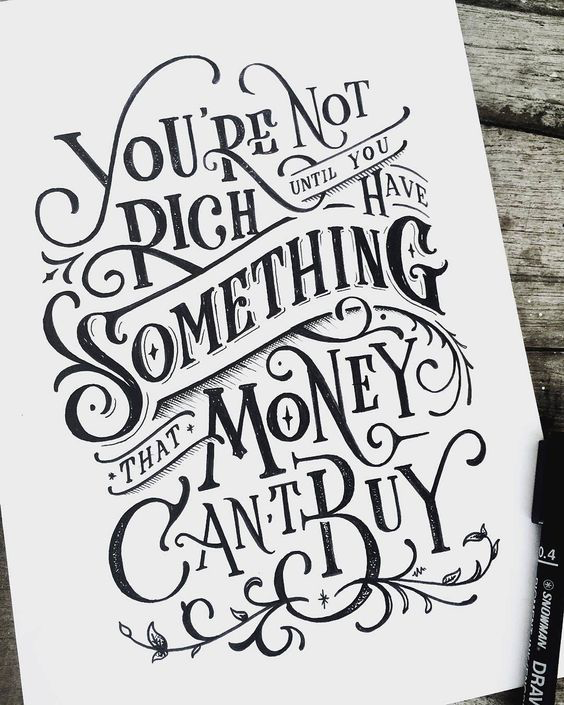 YOU'RE NOT
RICH UNTIL YOU
HAVE
SOMETHING
THAT MONEY
CAN'T BUY
0.4
SNOWMAN.